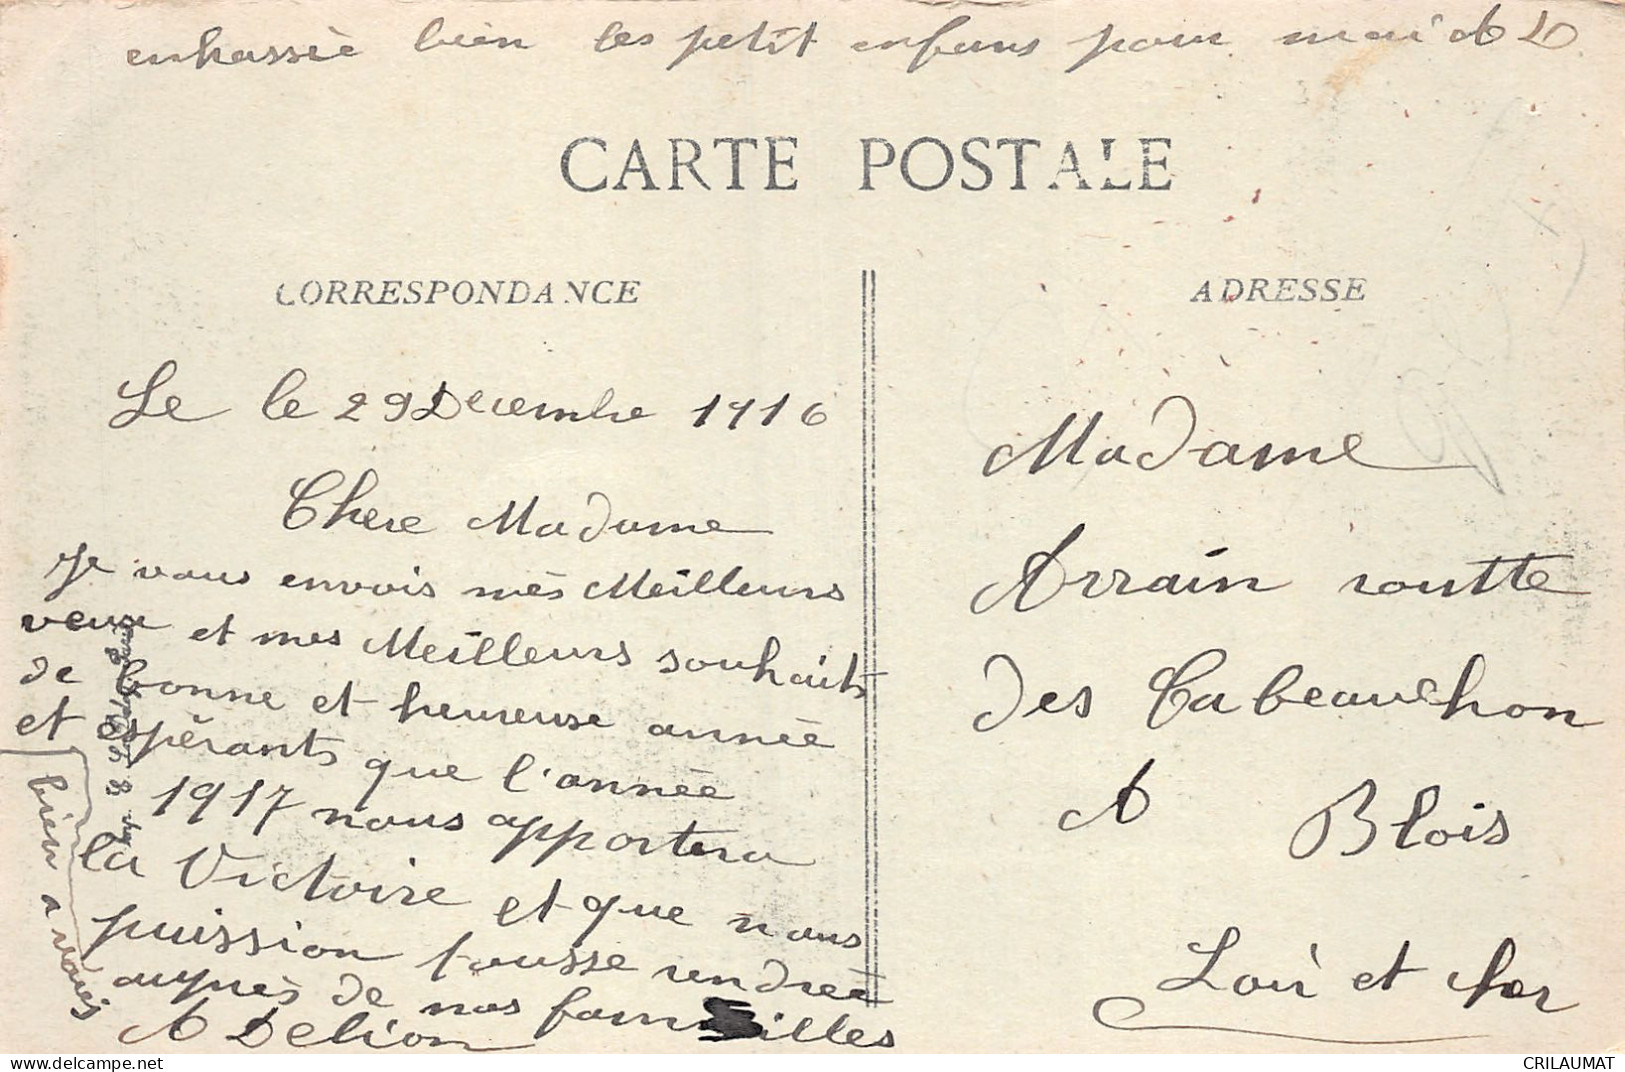 enbassiè bien les petit enfans pour moi A D.
CARTE POSTALE
CORRESPONDANCE
ADRESSE
Le le 29 Decembre 1916
Chere Madame
Je vous envois mès Meilleurs
veux et mes Meilleurs souhaits
de bonne et heureuse année
et espérants que l'année
1917 nous apportera
la Victoire et que nous
puission tousse rendreè
auprès de nos familles
A Delion
bien a vous
Madame
Arrain routte
des Cabeauchon
A Blois
Loir et Cher
CRILAUMAT